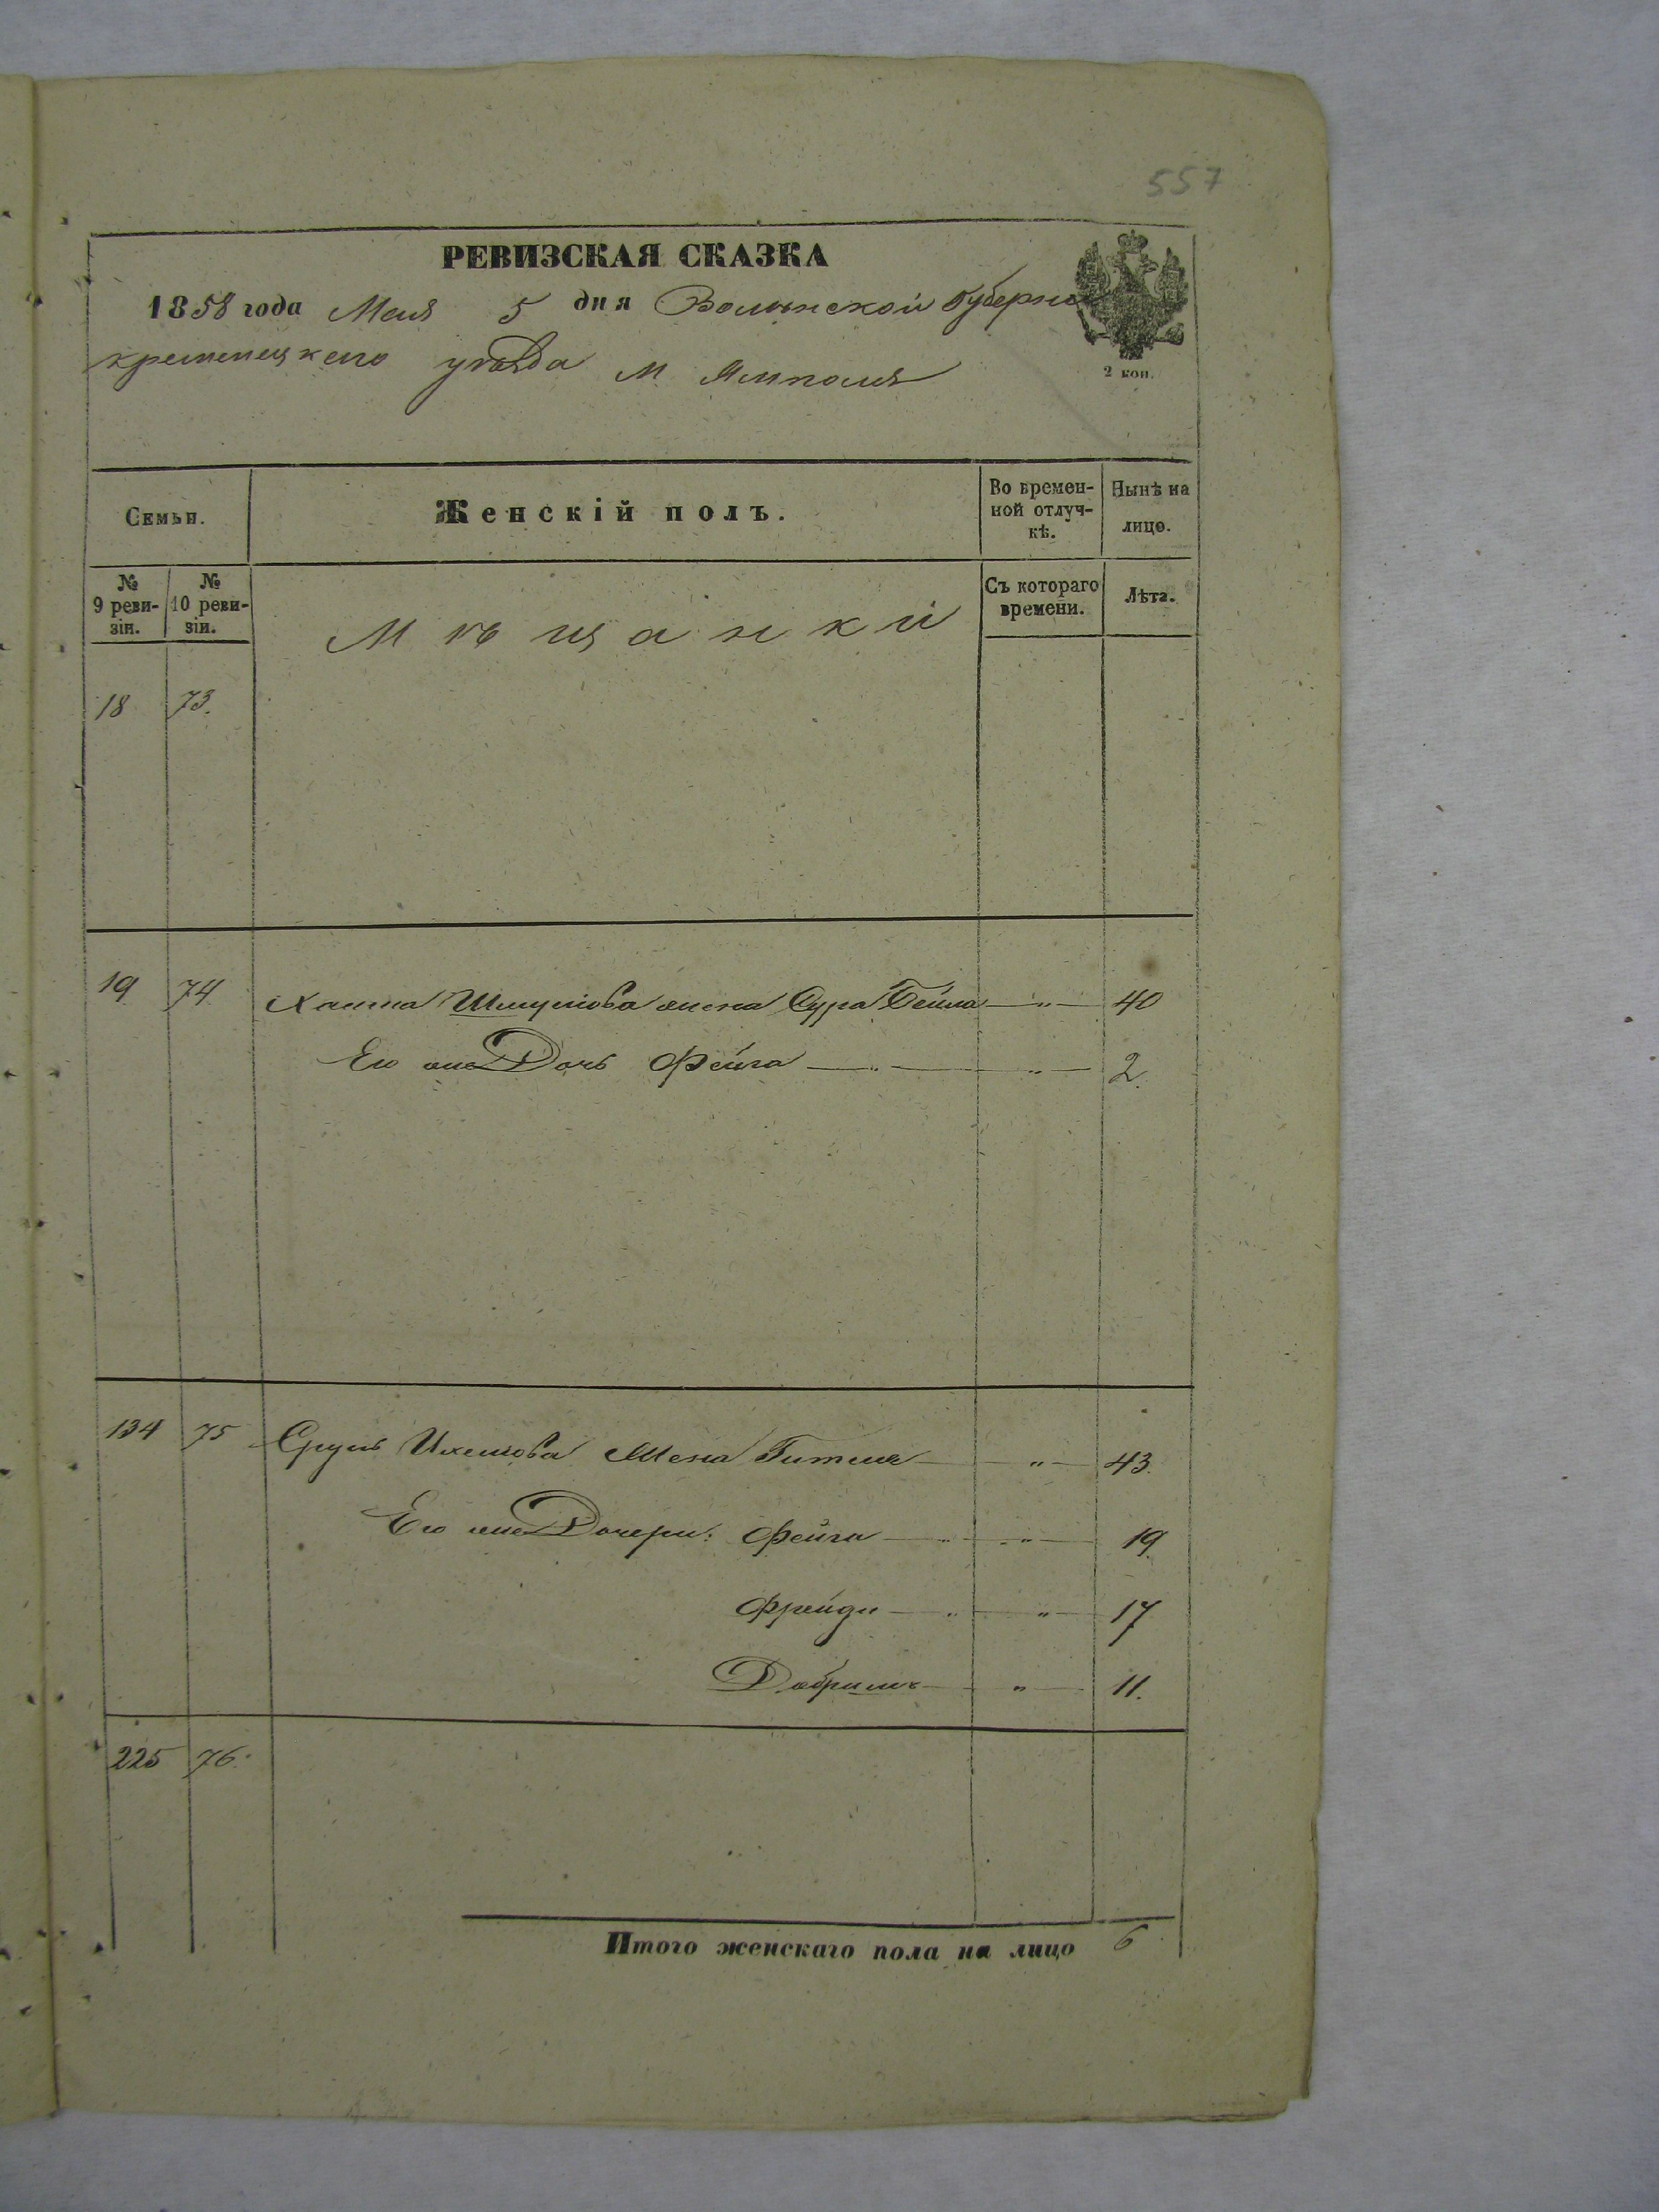 557
РЕВИЗСКАЯ СКАЗКА
1858 года Мая 5 дня Волынской Губернии
кременецкаго уѣзда М Ямполя
2 коп.
Семьи.
Женскій полъ.
Во времен-
ной отлуч-
кѣ.
Нынѣ на
лицо.
№
9 реви-
зіи.
№
10 реви-
зіи.
Мѣщанки
Съ котораго
времени.
Лѣта.
18 73.
19 74 Хаима Шмулiова жена Сура Бейла — „ — 40
Его же Дочь Фейга — „ — „ — 2.
134 75 Сруль жена Гитля — „ — 43.
Его же Дочери: Фейга — „ — „ — 19.
Фрейда — „ — „ — 17
Добрыля — „ — 11.
225 76.
Итого женскаго пола на лицо 6